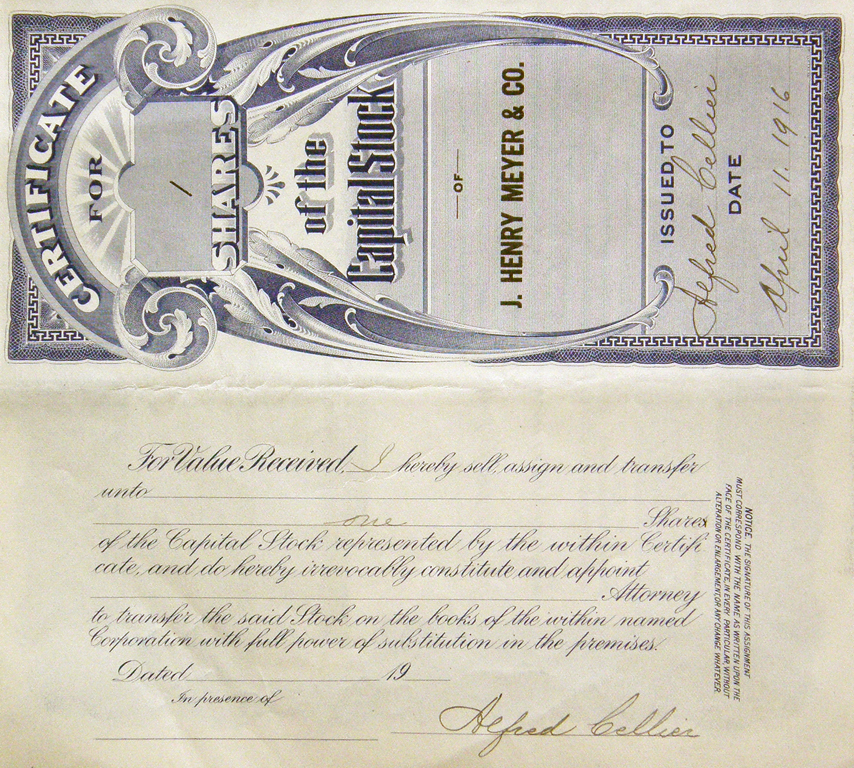 CERTIFICATE
FOR
1
SHARES
of the
Capital Stock
OF
J. HENRY MEYER & CO.
ISSUED TO
Alfred Cellier
DATE
April 11. 1916
For Value Received, I hereby sell, assign and transfer
unto
one Shares
of the Capital Stock represented by the within Certifi
cate, and do hereby irrevocably constitute and appoint
Attorney
to transfer the said Stock on the books of the within named
Corporation with full power of substitution in the premises.
Dated 19
In presence of
Alfred Cellier
NOTICE. THE SIGNATURE OF THIS ASSIGNMENT
MUST CORRESPOND WITH THE NAME AS WRITTEN UPON THE
FACE OF THE CERTIFICATE, IN EVERY PARTICULAR, WITHOUT
ALTERATION OR ENLARGEMENT, OR ANY CHANGE WHATEVER.